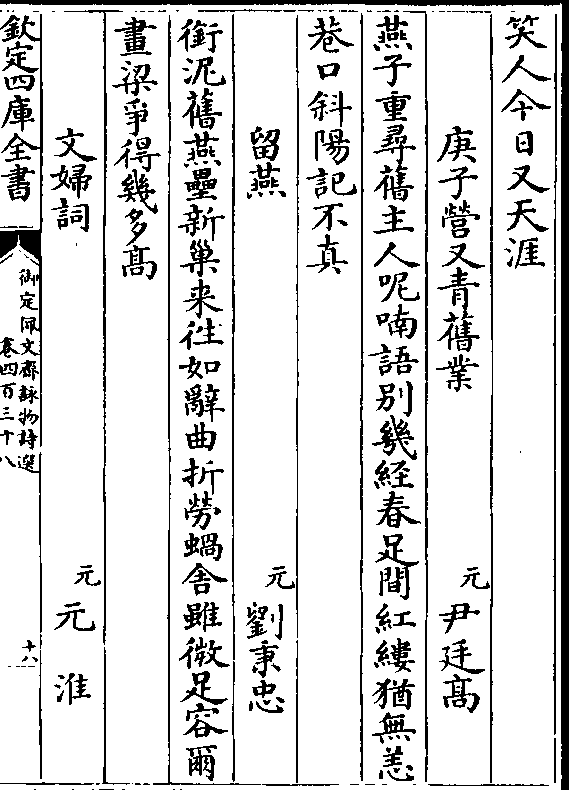 笑人今日又天涯
庚子營又青舊業 元 尹廷高
燕子重尋舊主人呢喃語別幾經春足間紅縷猶無恙
巷口斜陽記不真
留燕 元 劉秉忠
銜泥舊燕壘新巢来往如辭曲折勞蝸舍雖微足容爾
畫梁爭得幾多高
文婦詞 元 元淮
欽定四庫全書
御定佩文齋詠物詩選
卷四百三十八
十八